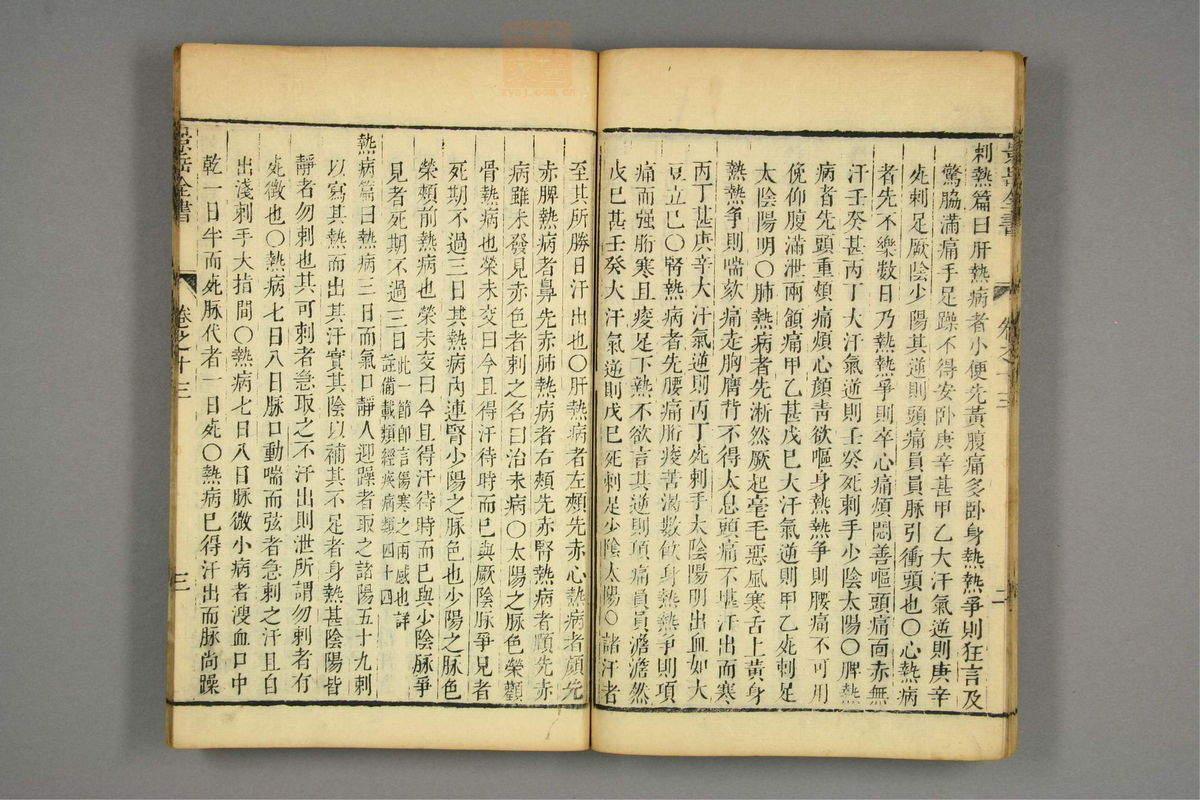 景岳全書
卷之十三
二
刺熱篇曰肝熱病者小便先黃腹痛多卧身熱熱爭則狂言及
驚脇滿痛手足躁不得安卧庚辛甚甲乙大汗氣逆則庚辛
死刺足厥陰少陽其逆則頭痛員員脉引衝頭也〇心熱病
者先不樂數日乃熱熱爭則卒心痛煩悶善嘔頭痛面赤無
汗壬癸甚丙丁大汗氣逆則壬癸死刺手少陰太陽〇脾熱
病者先頭重頰痛煩心顏青欲嘔身熱熱爭則腰痛不可用
俛仰腹滿泄兩頷痛甲乙甚戊巳大汗氣逆則甲乙死刺足
太陰陽明〇肺熱病者先淅然厥起毫毛惡風寒舌上黃身
熱熱爭則喘欬痛走胸膺背不得太息頭痛不堪汗出而寒
丙丁甚庚辛大汗氣逆則丙丁死刺手太陰陽明出血如大
豆立巳〇腎熱病者先腰痛胻痠苦渴數飲身熱熱爭則項
痛而强胻寒且痠足下熱不欲言其逆則項痛員員澹澹然
戊巳甚壬癸大汗氣逆則戊巳死刺足少陰太陽〇諸汗者
至其所勝日汗出也〇肝熱病者左頰先赤心熱病者顏先
赤脾熱病者鼻先赤肺熱病者右頰先赤腎熱病者頤先赤
病雖未發見赤色者刺之名曰治未病〇太陽之脉色榮顴
骨熱病也榮未交曰今且得汗待時而巳與厥陰脉爭見者
死期不過三日其熱病內連腎少陽之脉色也少陽之脉色
榮頰前熱病也榮未交曰今且得汗待時而巳與少陰脉爭
見者死期不過三日此一節即言傷寒之兩感也詳
註備載類經疾病類四十四
熱病篇曰熱病三日而氣口靜人迎躁者取之諸陽五十九刺
以寫其熱而出其汗實其陰以補其不足者身熱甚陰陽皆
靜者勿刺也其可刺者急取之不汗出則泄所謂勿刺者有
死徵也〇熱病七日八日脉口動喘而弦者急刺之汗且自
出淺刺手大指間〇熱病七日八日脉微小病者溲血口中
乾一日半而死脉代者一日死〇熱病巳得汗出而脉尚躁
景岳全書
卷之十三
三